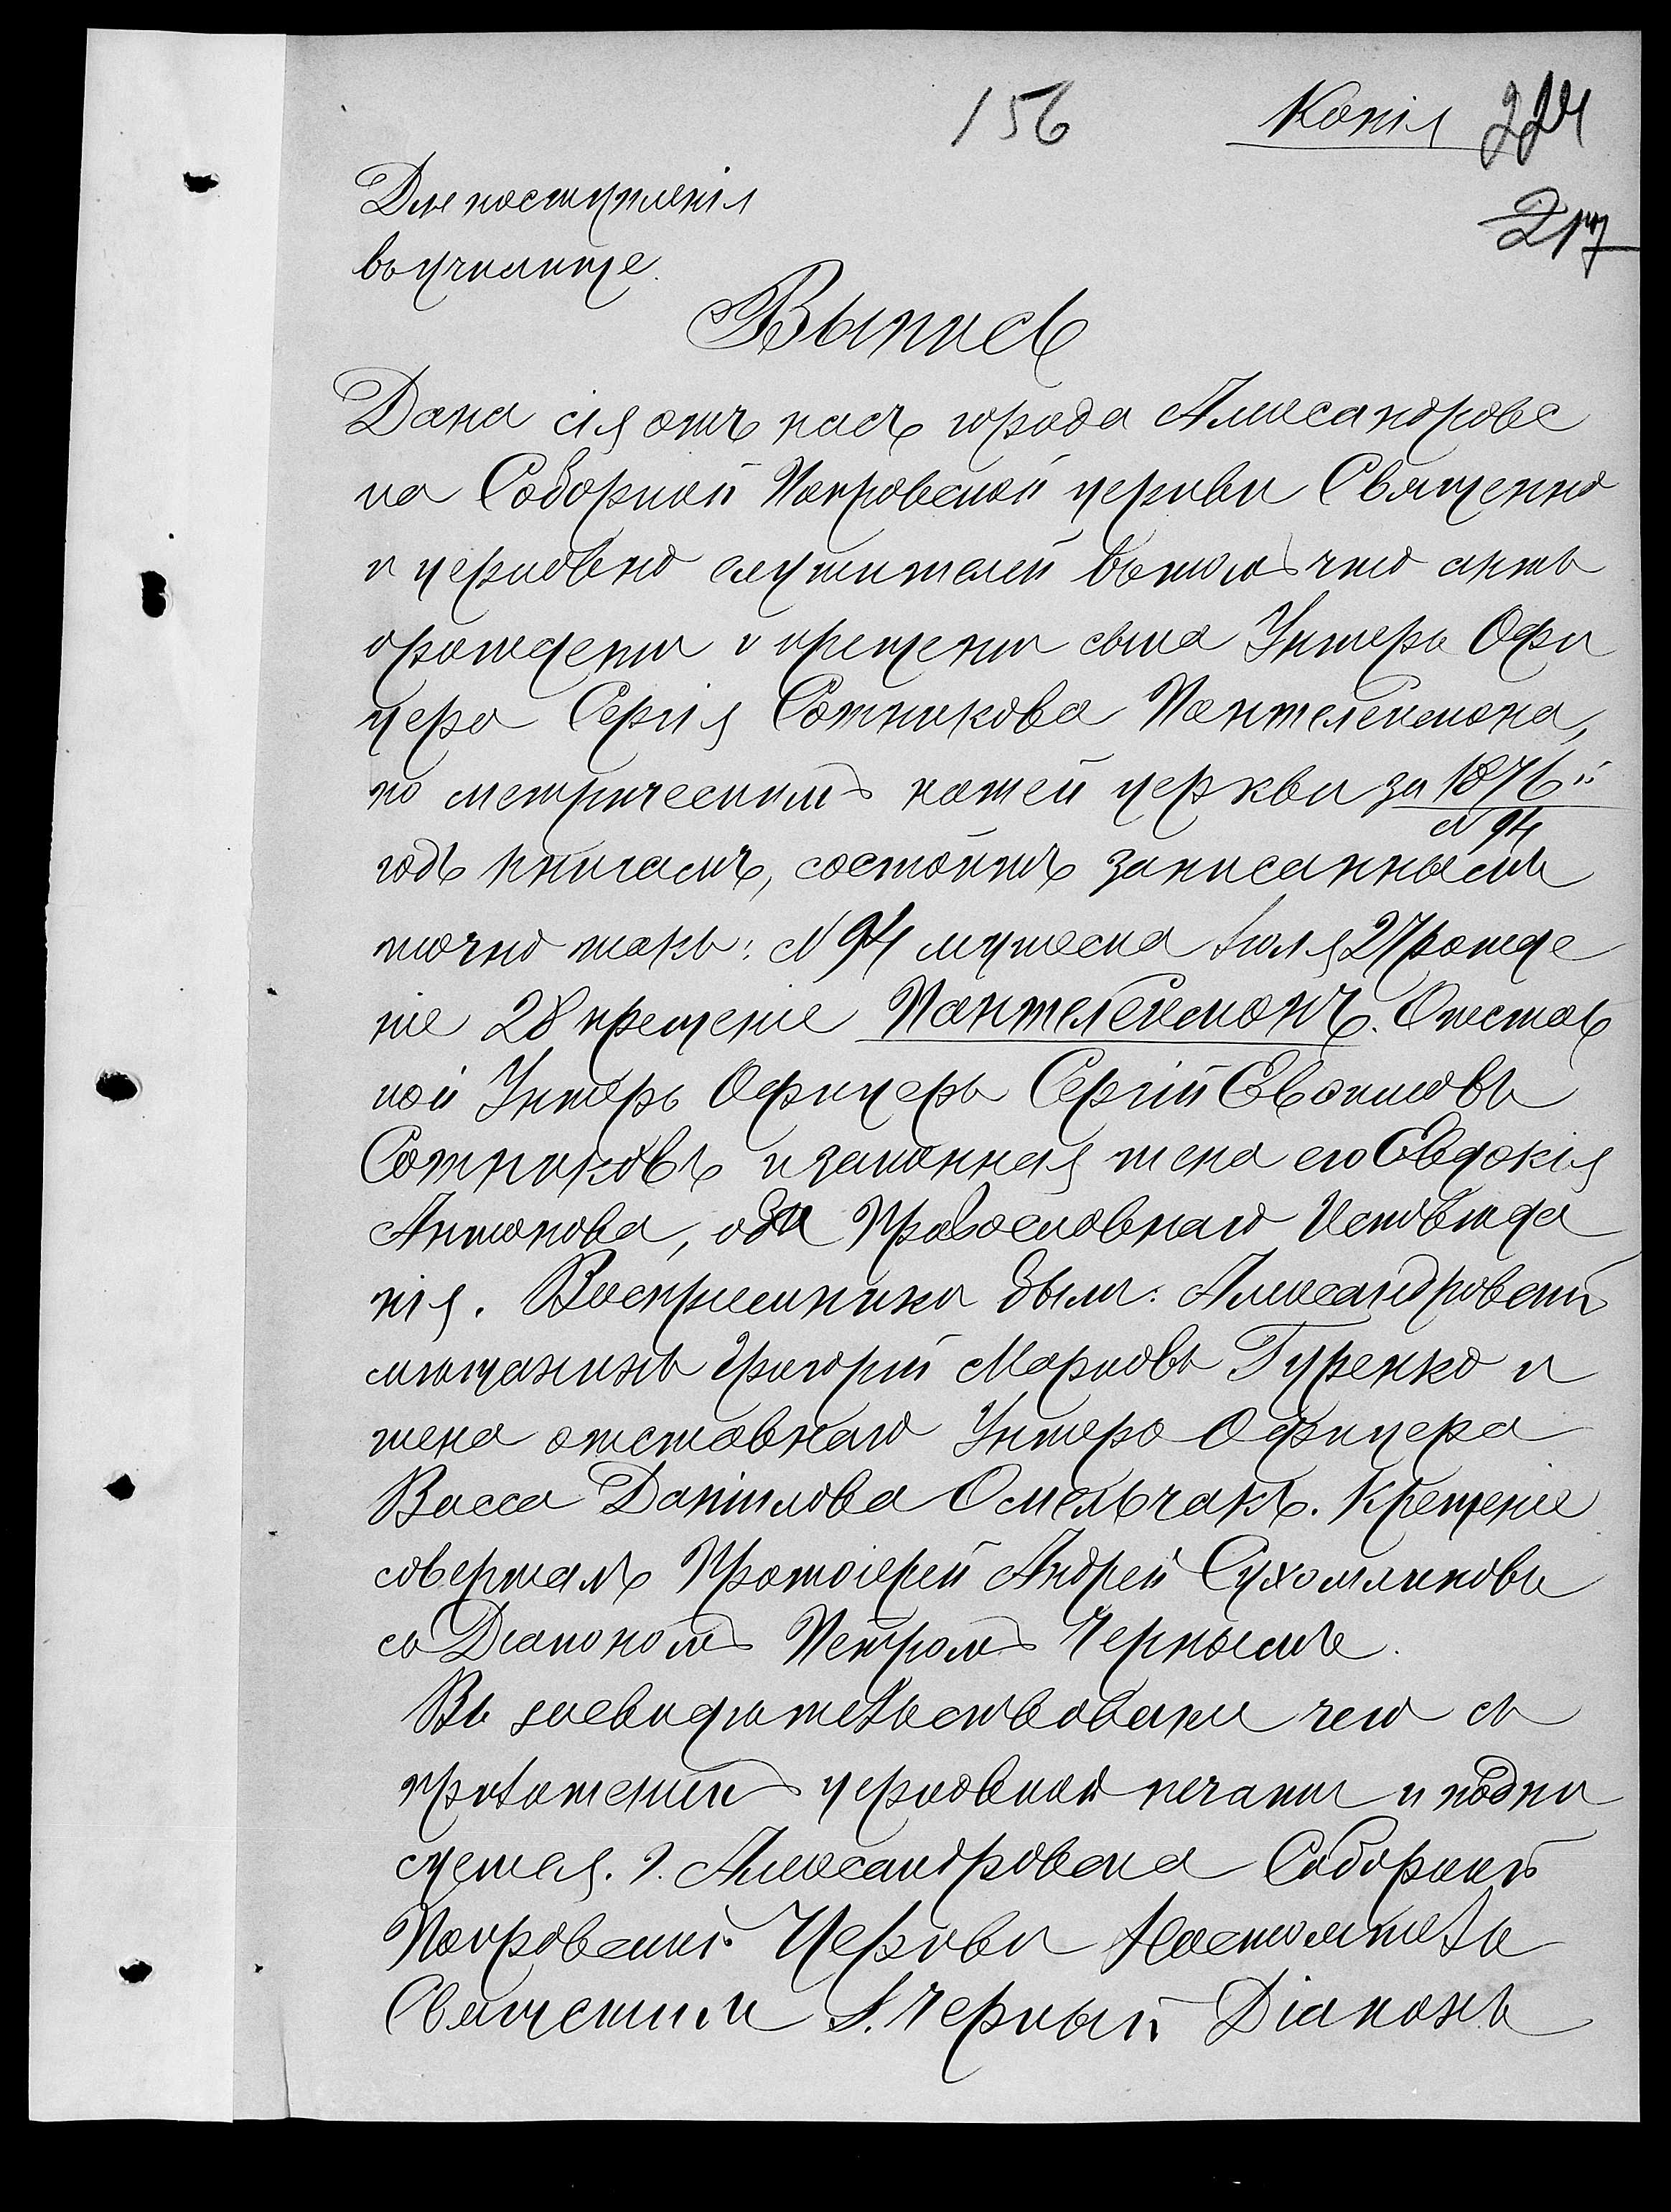 156 Копія 224
217
Для поступленія
въ училище.
Выпись
Дана сія отъ насъ города Александровс
ка Соборной Покровской церкви Священно
и церковно служителей въ томъ что актъ
о рожденіи и крещеніи сына Унтеръ Офи
цера Сергія Сотникова Пантелеимона,
по метрическимъ нашей церкви за 1876й
N 94
годъ книгамъ, состоитъ записаннымъ
точно такъ: N 94 мужеска Іюля 27 рожде
ніе 28 крещеніе Пантелеимонъ. Отстав
ной Унтеръ Офицеръ Сергій
Сотниковъ и законная жена его Евдокія
Антонова, оба Православнаго Исповѣда
нія. Воспріемники были: Александровскій
мѣщанинъ Григорій Марковъ Гуренко и
жена отставнаго Унтеръ Офицера
Васса Даніилова Омельчакъ. Крещеніе
совершалъ Протоіерей Андрей Сухомлиновъ
съ Діакономъ Петромъ Чернымъ.
Въ засвидѣтельствованіи чего съ
приложеніемъ церковной печати и подпи
суемся. г. Александровска Соборной
Покровской Церкви Настоятель
Священникъ І. Черный Діаконъ